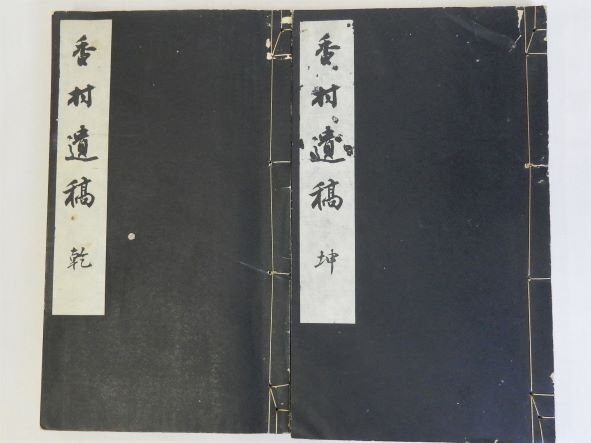 香村遺稿 乾
香村遺稿 坤